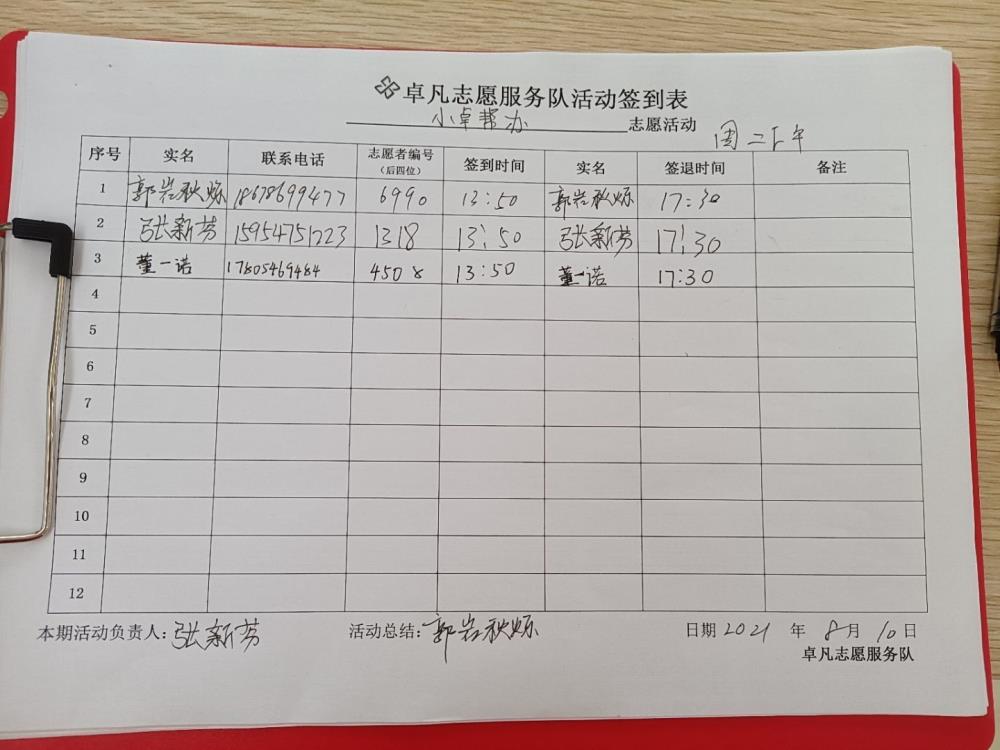 卓凡志愿服务队活动签到表
小卓帮办 志愿活动 周二下午
序号 实名 联系电话 志愿者编号(后四位) 签到时间 实名 签退时间 备注
1 郭岩秋烁 18678699477 6990 13:50 郭岩秋烁 17:30
2 张新芳 15954751223 1318 13:50 张新芳 17:30
3 董一诺 17805469484 4508 13:50 董一诺 17:30
4
5
6
7
8
9
10
11
12
本期活动负责人:张新芳 活动总结:郭岩秋烁 日期2021年8月10日
卓凡志愿服务队